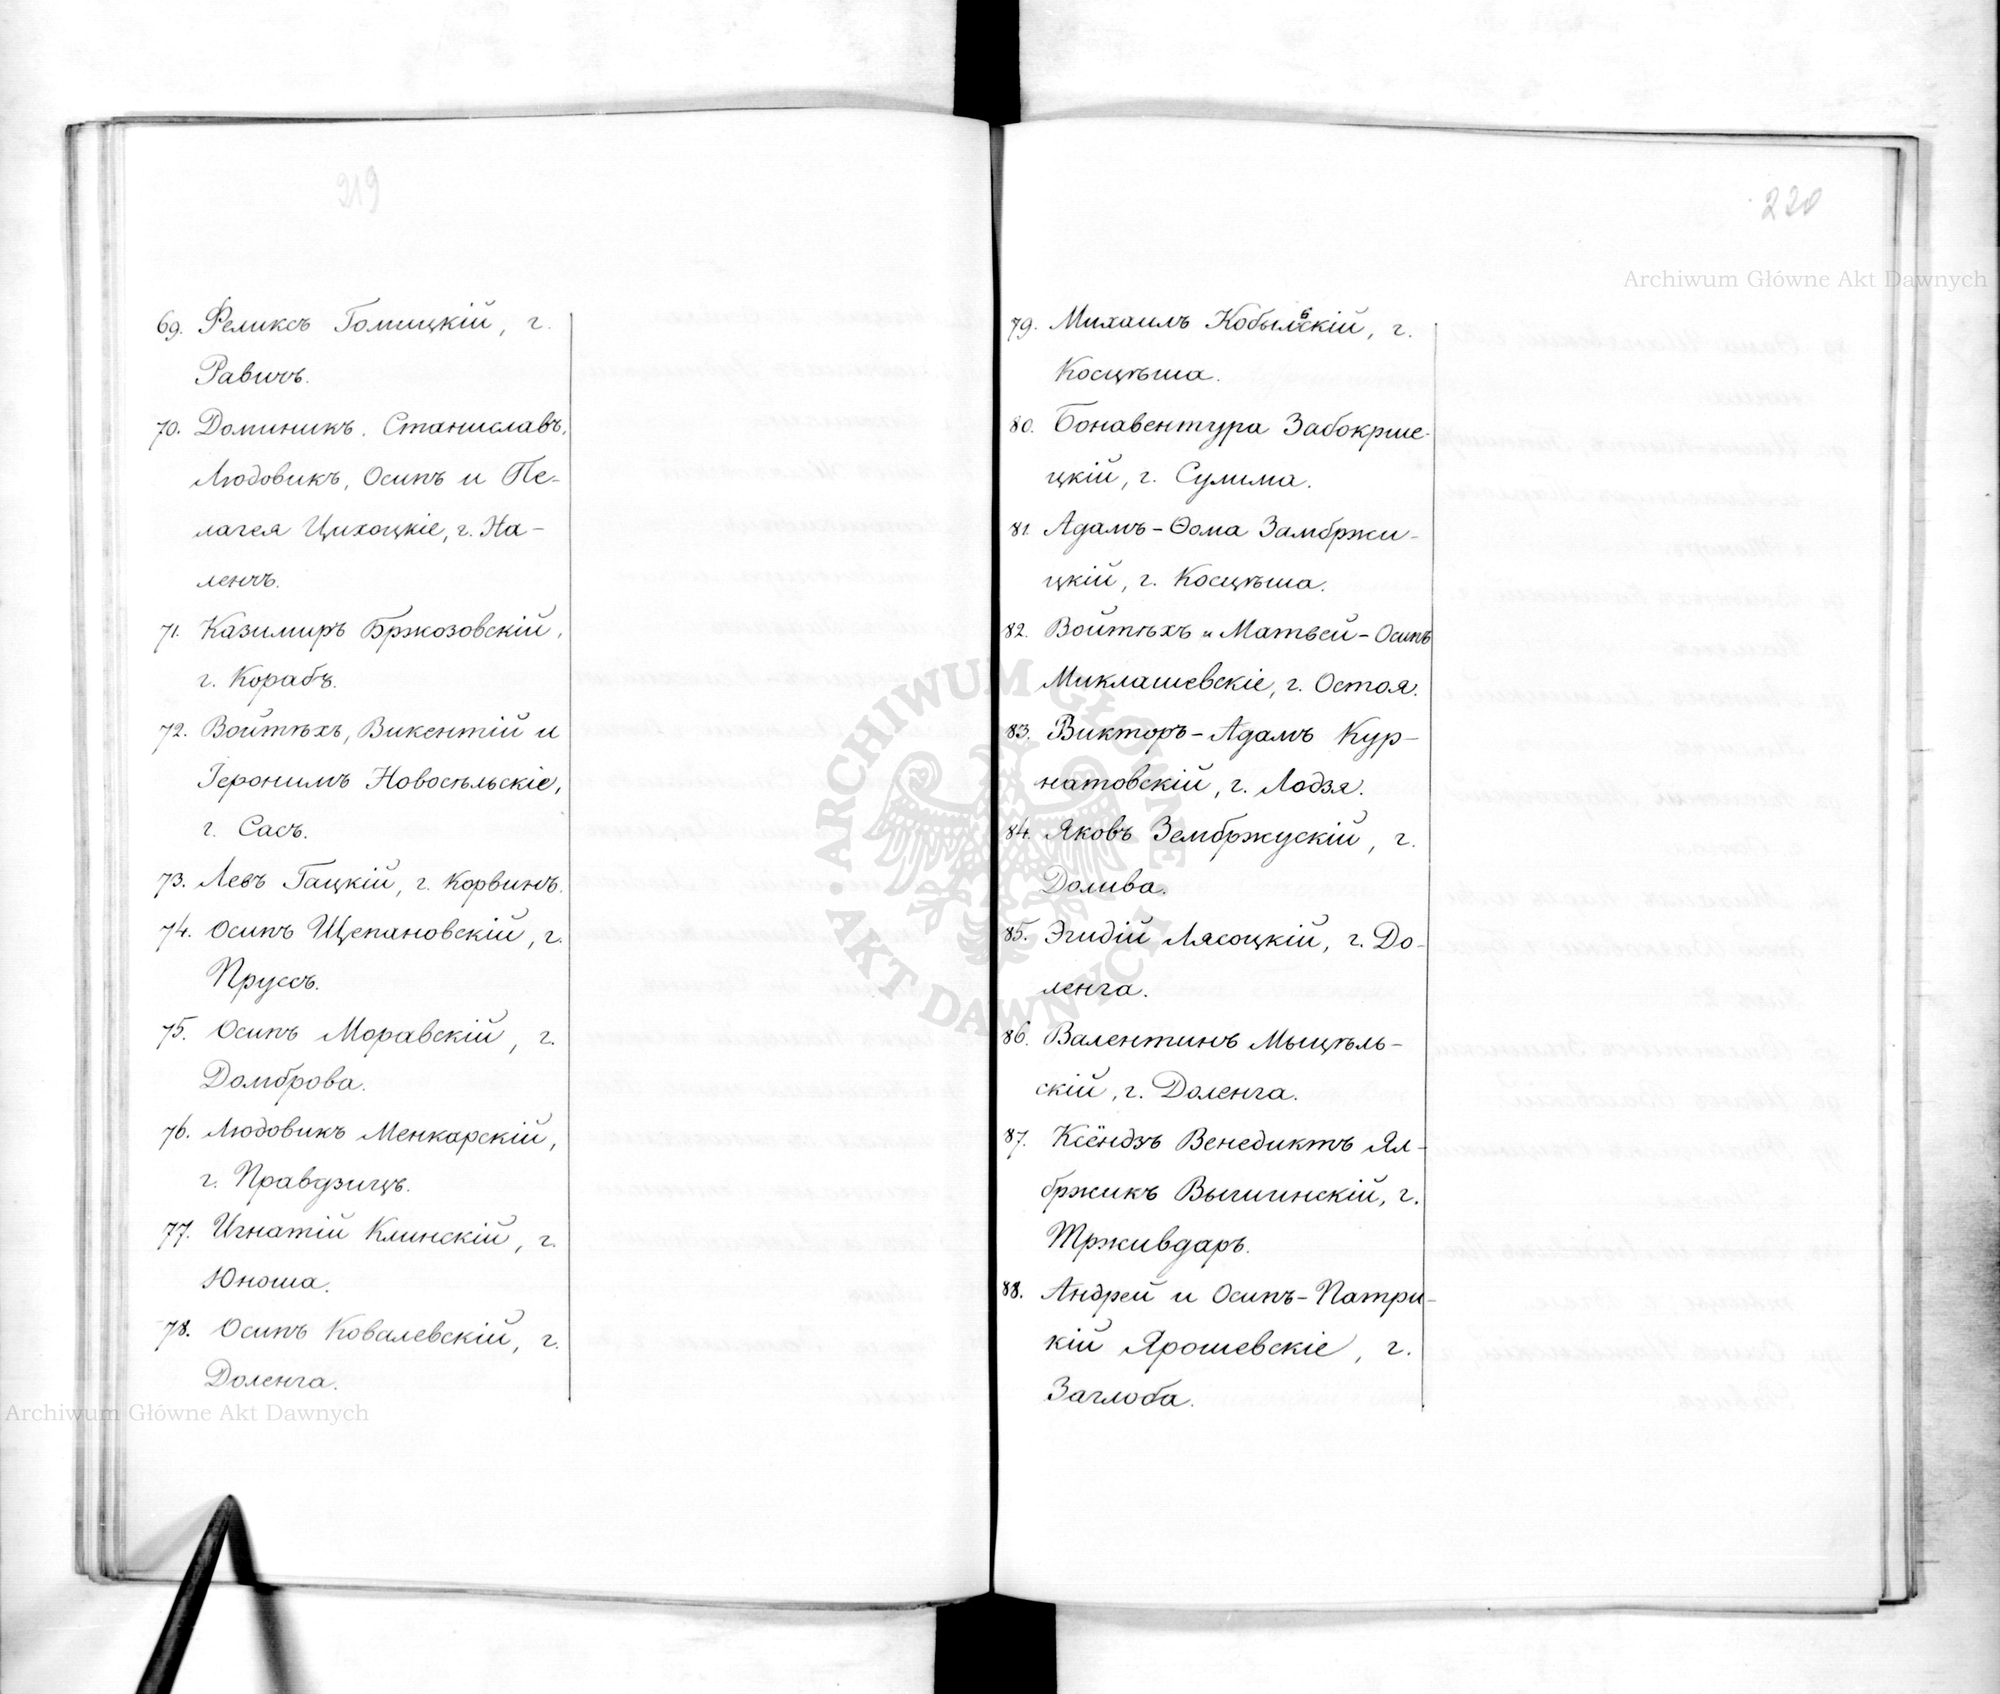 219
69. Феликсъ Гомицкій, г.
Равичъ.
70. Доминикъ, Станиславъ,
Людовикъ, Осипъ и Пе-
лагея Цихоцкіе, г. На-
ленчъ.
71. Казимиръ Бржозовскій,
г. Корабъ.
72. Войтѣхъ, Викентій и
Іеронимъ Новосѣльскіе,
г. Сасъ.
73. Левъ Гацкій, г. Корвинъ.
74. Осипъ Щепановскій, г.
Пруссъ.
75. Осипъ Моравскій, г.
Домброва.
76. Людовикъ Менкарскій,
г. Правдзицъ.
77. Игнатій Клинскій, г.
Юноша.
78. Осипъ Ковалевскій, г.
Доленга.
Archiwum Główne Akt Dawnych
220
Archiwum Główne Akt Dawnych
79. Михаилъ Кобыльскій, г.
Косцѣша.
80. Бонавентура Забокрше-
цкій, г. Сулима.
81. Адамъ-Ѳома Замбржи-
цкій, г. Косцѣша.
82. Войтѣхъ и Матвей-Осипъ
Миклашевскіе, г. Остоя.
83. Викторъ-Адамъ Кур-
натовскій, г. Лодзя.
84. Яковъ Зембржускій, г.
Долива.
85. Эгидій Лясоцкій, г. До-
ленга.
86. Валентинъ Мыцѣль-
скій, г. Доленга.
87. Ксёндзъ Венедиктъ Ял-
бржикъ Вышинскій, г.
Трживдаръ.
88. Андрей и Осипъ-Патри-
кій Ярошевскіе, г.
Заглоба.
ARCHIWUM GŁÓWNE AKT DAWNYCH